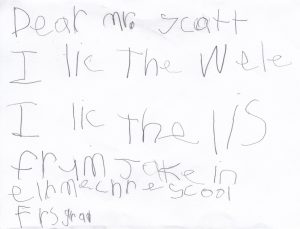 Dear mr. scott
I lic The Wele
I lic The lis
frum Jake in
elnmechne scool
frsgrad